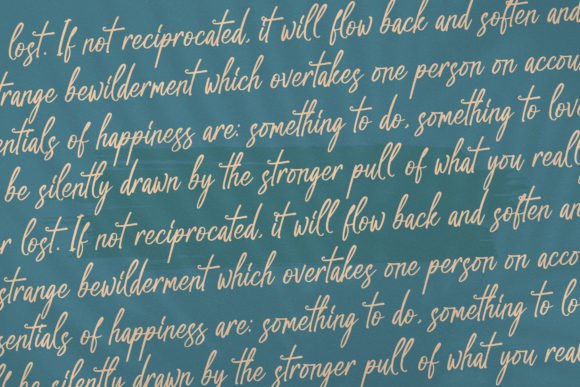 lost. If not reciprocated, it will flow back and soften and
strange bewilderment which overtakes one person on accou
entials of happiness are: something to do, something to lov
be silently drawn by the stronger pull of what you reall
r lost. If not reciprocated, it will flow back and soften an
strange bewilderment which overtakes one person on acco
sentials of happiness are: something to do, something to lo
d be silently drawn by the stronger pull of what you real